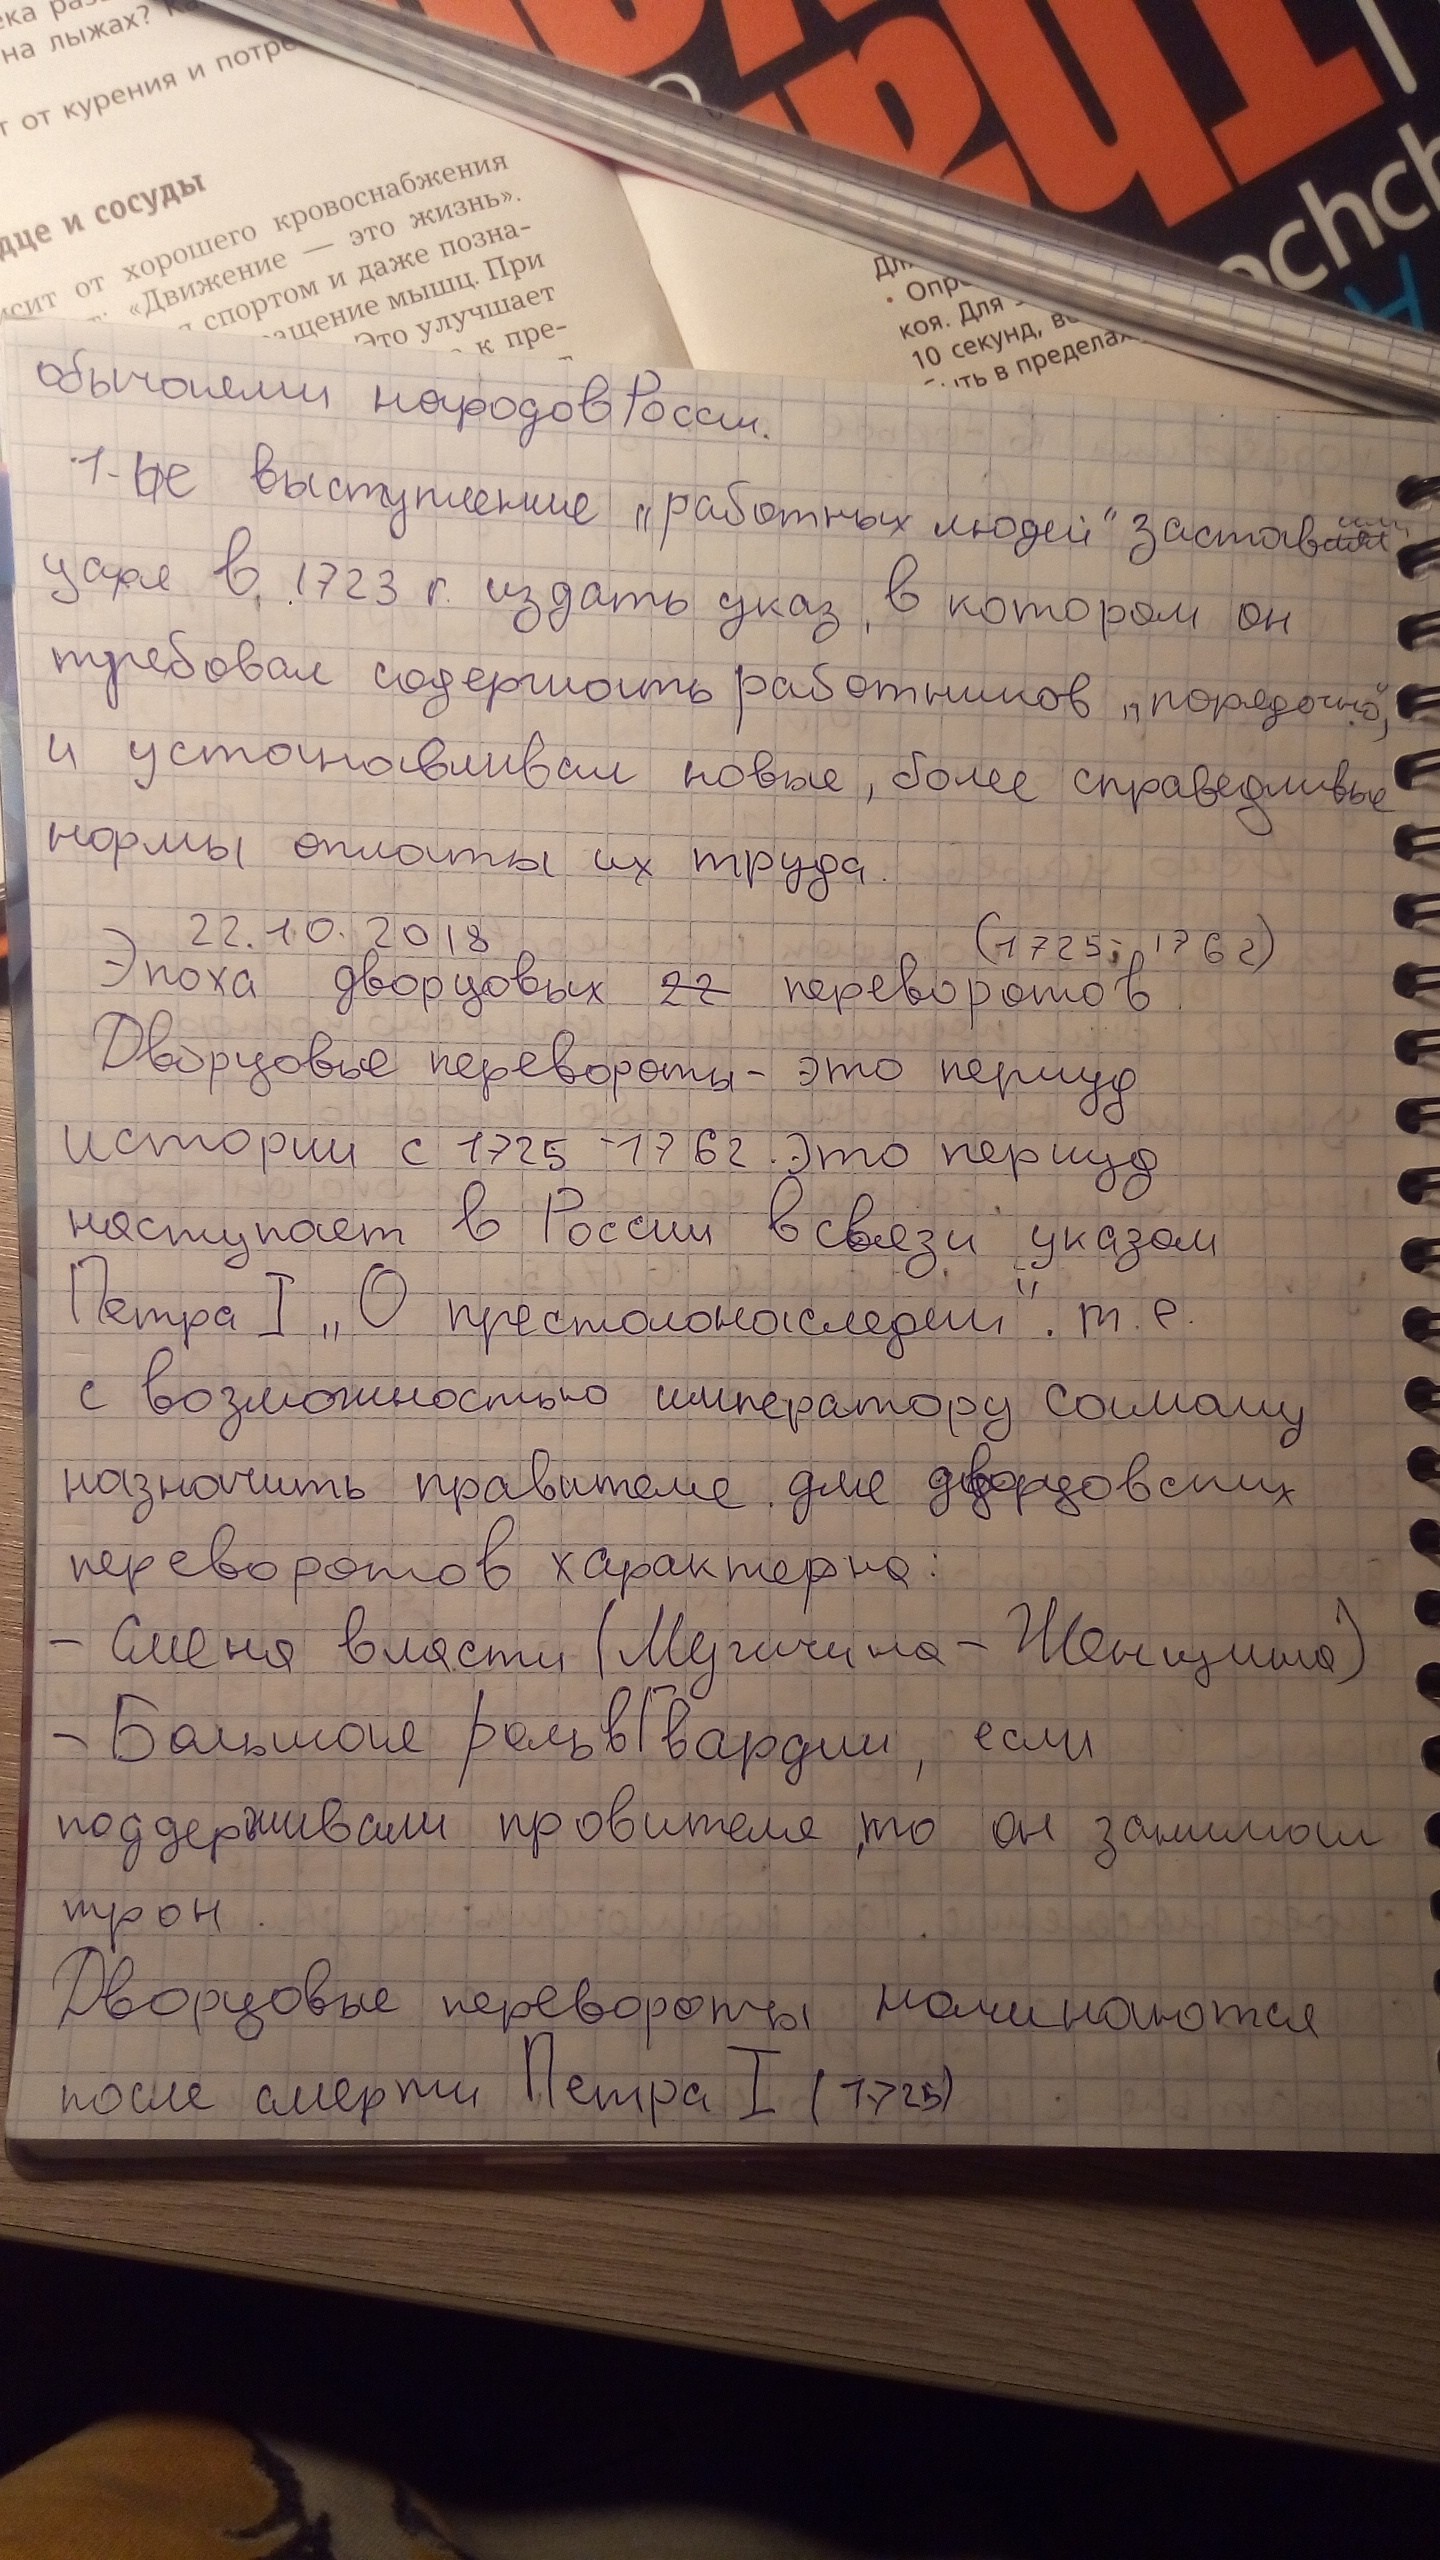 на лыжах?
т от курения и потре
дце и сосуды
исит от хорошего кровоснабжения
«Движение — это жизнь».
спортом и даже позна-
ращение мышц. При
Это улучшает
к пре-
Опре
коя. Для
10 секунд,
быть в пределах
chch
обычаями народов России.
1-ые выступление „работных людей" заставили
царя в 1723 г. издать указ, в котором он
требовал содержать работников „порядочно",
и устанавливал новые, более справедливые
нормы оплаты их труда.
22.10.2018
(1725; 1762)
Эпоха дворцовых 22 переворотов.
Дворцовые перевороты - это период
истории с 1725-1762. Это период
наступает в России всвязи указом
Петра I „О престолонаследии". т.е.
с возможностью императору самому
назначить правителя. для дворцовских
переворотов характерна:
- Смена власти (Мужичина - Женщина)
- Большая роль в Гвардии, если
поддерживали провителя, то он занимал
трон.
Дворцовые перевороты начинаются
после смерти Петра I (1725)